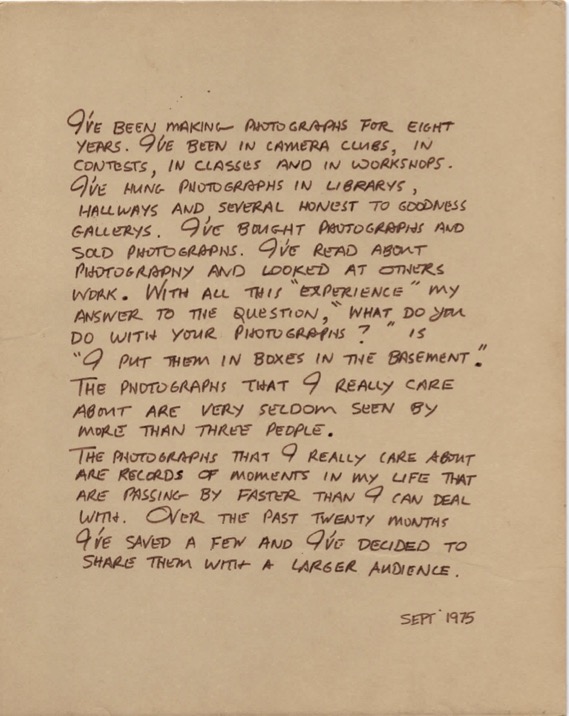 I'VE BEEN MAKING PHOTOGRAPHS FOR EIGHT
YEARS. I'VE BEEN IN CAMERA CLUBS, IN
CONTESTS, IN CLASSES AND IN WORKSHOPS.
I'VE HUNG PHOTOGRAPHS IN LIBRARYS,
HALLWAYS AND SEVERAL HONEST TO GOODNESS
GALLERYS. I'VE BOUGHT PHOTOGRAPHS AND
SOLD PHOTOGRAPHS. I'VE READ ABOUT
PHOTOGRAPHY AND LOOKED AT OTHERS
WORK. WITH ALL THIS "EXPERIENCE" MY
ANSWER TO THE QUESTION, "WHAT DO YOU
DO WITH YOUR PHOTOGRAPHS?" IS
"I PUT THEM IN BOXES IN THE BASEMENT."
THE PHOTOGRAPHS THAT I REALLY CARE
ABOUT ARE VERY SELDOM SEEN BY
MORE THAN THREE PEOPLE.
THE PHOTOGRAPHS THAT I REALLY CARE ABOUT
ARE RECORDS OF MOMENTS IN MY LIFE THAT
ARE PASSING BY FASTER THAN I CAN DEAL
WITH. OVER THE PAST TWENTY MONTHS
I'VE SAVED A FEW AND I'VE DECIDED TO
SHARE THEM WITH A LARGER AUDIENCE.
SEPT 1975